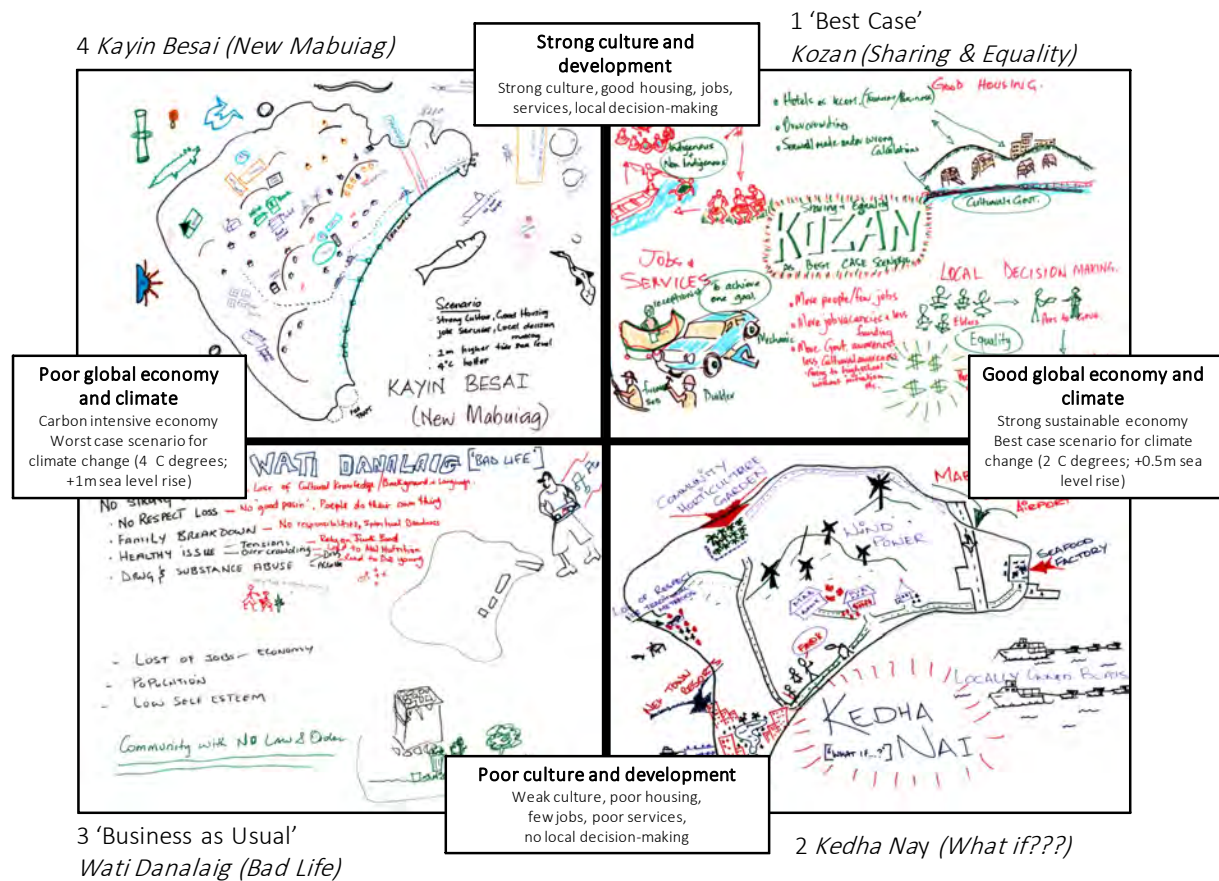 4 Kayin Besai (New Mabuiag)
1 ‘Best Case’
Kozan (Sharing & Equality)
Strong culture and
development
Strong culture, good housing, jobs,
services, local decision-making
Scenario
Strong Culture, Good Housing
jobs Services, Local decision
making
1m higher tide sea level
4°C hotter
KAYIN BESAI
(New Mabuiag)
GOOD HOUSING.
Overcrowding
Seawall made under wrong
Calculations
Cultural & Govt.
Indigenous
Non Indigenous
Sharing & Equality
KOZAN
AS BEST CASE SCENARIO
JOBS &
SERVICES
receptionist
To achieve
one goal.
Mechanic
Builder
• More people/few jobs
• More job vacancies & less
funding
• More Govt awareness
less Cultural awareness
Going to highschool
without initiation
etc.
LOCAL DECISION MAKING.
Elders
Equality
$ $
$ $
Poor global economy
and climate
Carbon intensive economy
Worst case scenario for
climate change (4 C degrees;
+1m sea level rise)
Good global economy and
climate
Strong sustainable economy
Best case scenario for climate
change (2 C degrees; +0.5m sea
level rise)
WATI DANALAIG ['BAD LIFE']
NO STRONG
Loss of Cultural Knowledge/Background & Language.
• NO RESPECT LOSS — No 'good pasin', People do their own thing
• FAMILY BREAKDOWN — No responsibilities, Spiritual Deadness
• HEALTHY ISSUE — Tensions
Rely on Junk Food
Over crowding
Lead to Mal Nutrition
• DRUG & SUBSTANCE ABUSE
Lead to Die young
- LOST OF JOBS - ECONOMY
- POPULATION
- LOW SELF ESTEEM
Community with No Law & Order
COMMUNITY
HORTICULTURE
GARDEN
WIND
POWER
AIRPORT
SEAFOOD
FACTORY
LOSS OF RESPECT
NEW TOWN
RESORTS
LOCALLY OWNED BOATS
KEDHA
[WHAT IF...?]
NAI
Poor culture and development
Weak culture, poor housing,
few jobs, poor services,
no local decision-making
3 ‘Business as Usual’
Wati Danalaig (Bad Life)
2 Kedha Nay (What if???)